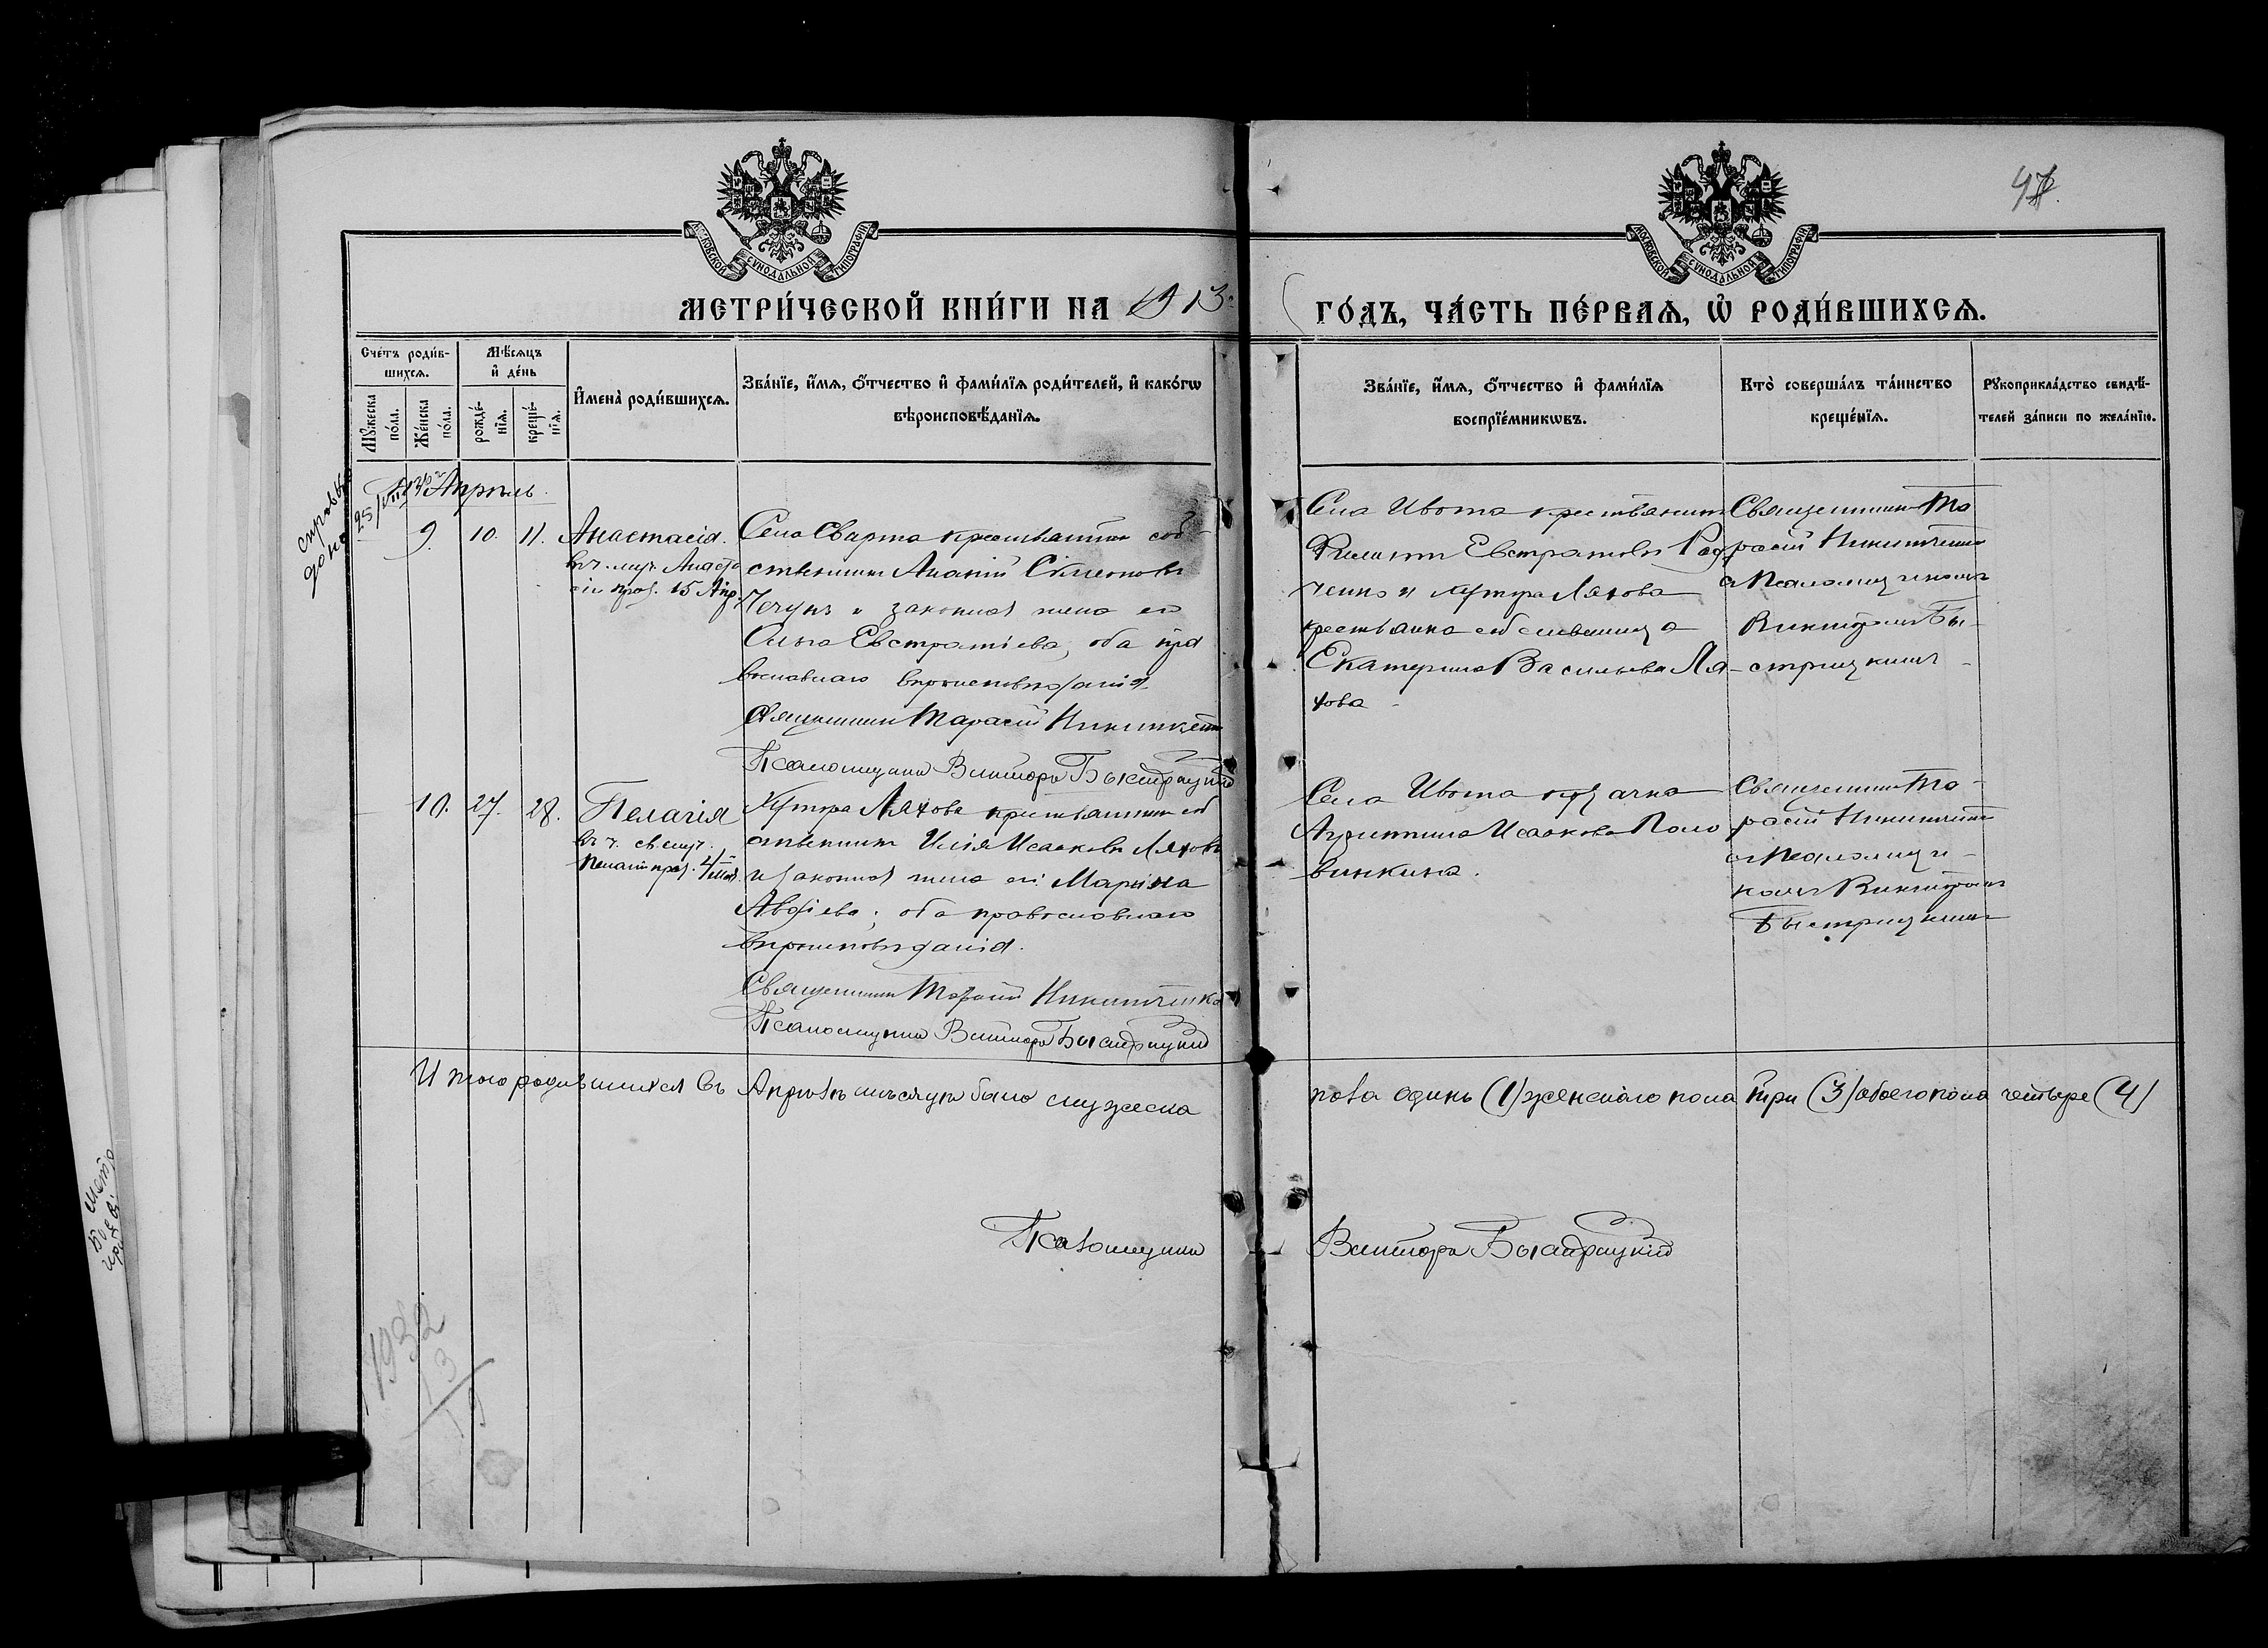 47.
МОСКОВСКОЙ СѴНОДАЛЬНОЙ ТИПОГРАФІИ
МОСКОВСКОЙ СѴНОДАЛЬНОЙ ТИПОГРАФІИ
МЕТРИ́ЧЕСКОЙ КНИ́ГИ НА 1913
ГО́ДЪ, ЧА́СТЬ ПЕ́РВАѦ, Ѡ҆ РОДИ́ВШИХСѦ.
Сче́тъ роди́в-
шихсѧ.
Мꙋ́жеска
по́ла.
Же́нска
по́ла.
Мѣ́сѧцъ
и҆ де́нь
рожде́-
нїѧ.
креще́-
нїѧ.
И҆мена̀ роди́вшихсѧ.
Зва́нїе, и҆́мѧ, ѻ҆́тчество и҆ фами́лїѧ роди́телей, и҆ како́гѡ
вѣроисповѣ́данїѧ.
Зва́нїе, и҆́мѧ, ѻ҆́тчество и҆ фами́лїѧ
воспрїе́мникѡвъ.
Кто̀ соверша́лъ та́инство
креще́нїѧ.
Рꙋкоприкла́дство свидѣ́-
телей за́писи по жела́нїю.
Апрѣль.
9. 10. 11. Анастасія.
15 Апр.
Села Сварта крестьянинъ соб-
ственникъ Ананій Симеоновъ
и законная жена его
Ольга Евстратіева, оба пра
вославнаго вѣроисповѣданія
Священникъ Тарасій Никитченко
Псаломщикъ Викторъ Быстрицкій
Села Ивота крестьянинъ
Филиппъ Евстратовъ Рад
ченко и хутора Ляхова
крестьянка собственница
Екатерина Васильева Ля-
хова
Священникъ Та
расій Никитченко
съ Псаломщикомъ
Викторомъ Бы-
стрицкимъ
10. 27. 28. Пелагія
Хутора Ляхова крестьянинъ соб
ственникъ Илія Исааковъ Ляховъ
и законная жена его Марина
Авдіева; оба православнаго
вѣроисповѣданія.
Священникъ Тарасій Никитченко
Псаломщикъ Викторъ Быстрицкій
Села Ивота казачка
Исаакова Поло
винкина.
Священникъ Та-
расій Никитченко
съ Псаломщи-
комъ Викторомъ
Быстрицкимъ
Итого родившихся въ Апрѣлѣ мѣсяцѣ было мужеска
пола одинъ (1) женскаго пола три (3) обоего пола четыре (4)
Псаломщикъ
Викторъ Быстрицкій
1932
13
19